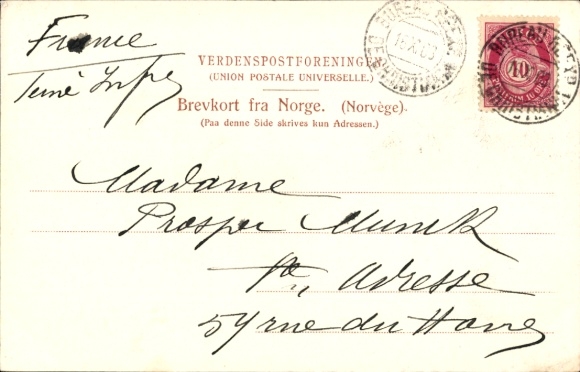 France
Seine Infre
VERDENSPOSTFORENINGEN
(UNION POSTALE UNIVERSELLE.)
Brevkort fra Norge. (Norvège).
(Paa denne Side skrives kun Adressen.)
10
Madame
Prosper Munck
Ste Adresse
54 rue du Havre